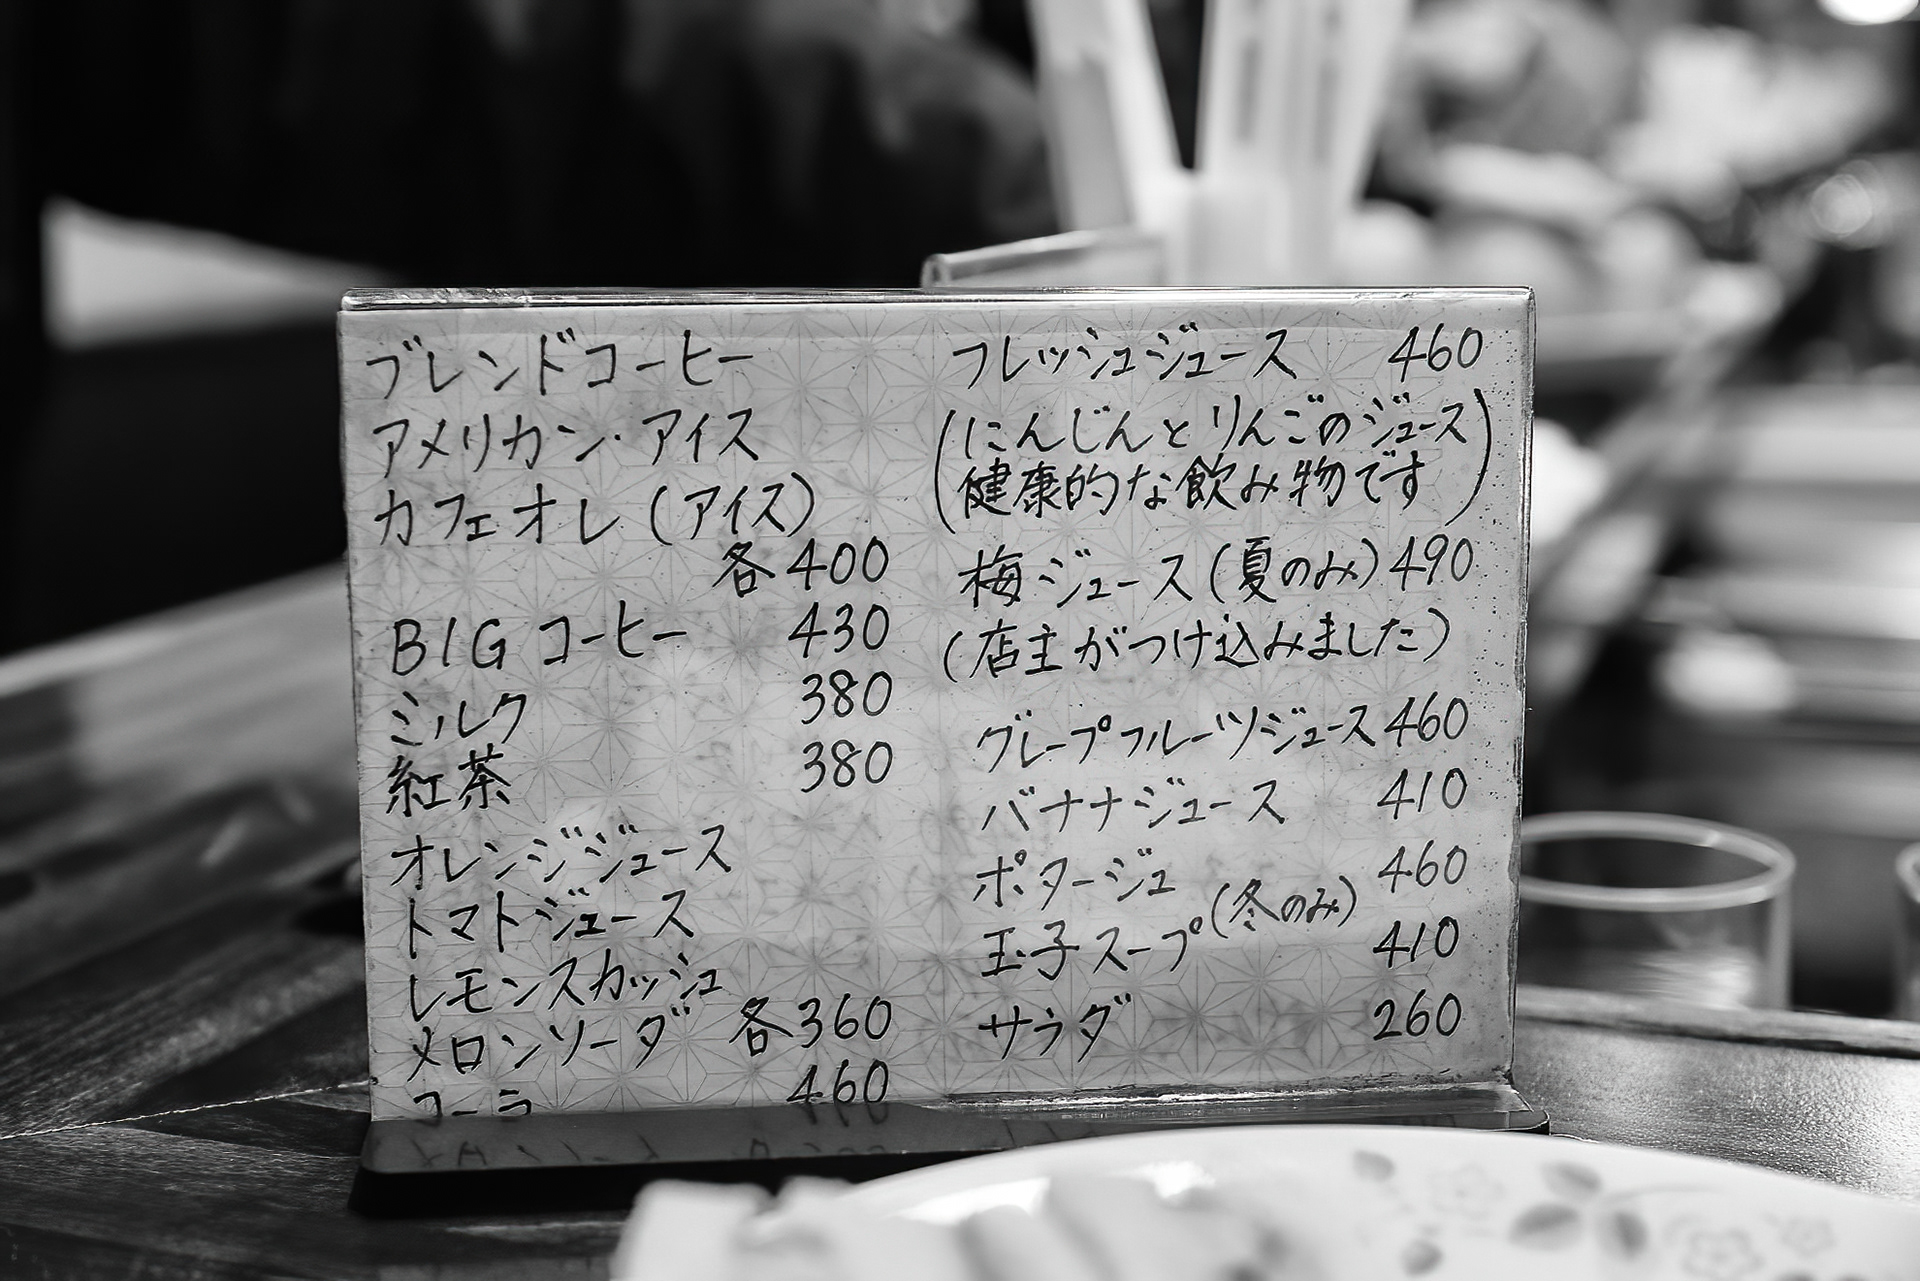 ブレンドコーヒー
アメリカン・アイス
カフェオレ(アイス)
各400
BIGコーヒー 430
ミルク 380
紅茶 380
オレンジジュース
トマトジュース
レモンスカッシュ
メロンソーダ 各360
コーラ 460
フレッシュジュース 460
(にんじんとりんごのジュース
健康的な飲み物です)
梅ジュース(夏のみ) 490
(店主がつけ込みました)
グレープフルーツジュース 460
バナナジュース 410
ポタージュ 460
玉子スープ(冬のみ) 410
サラダ 260